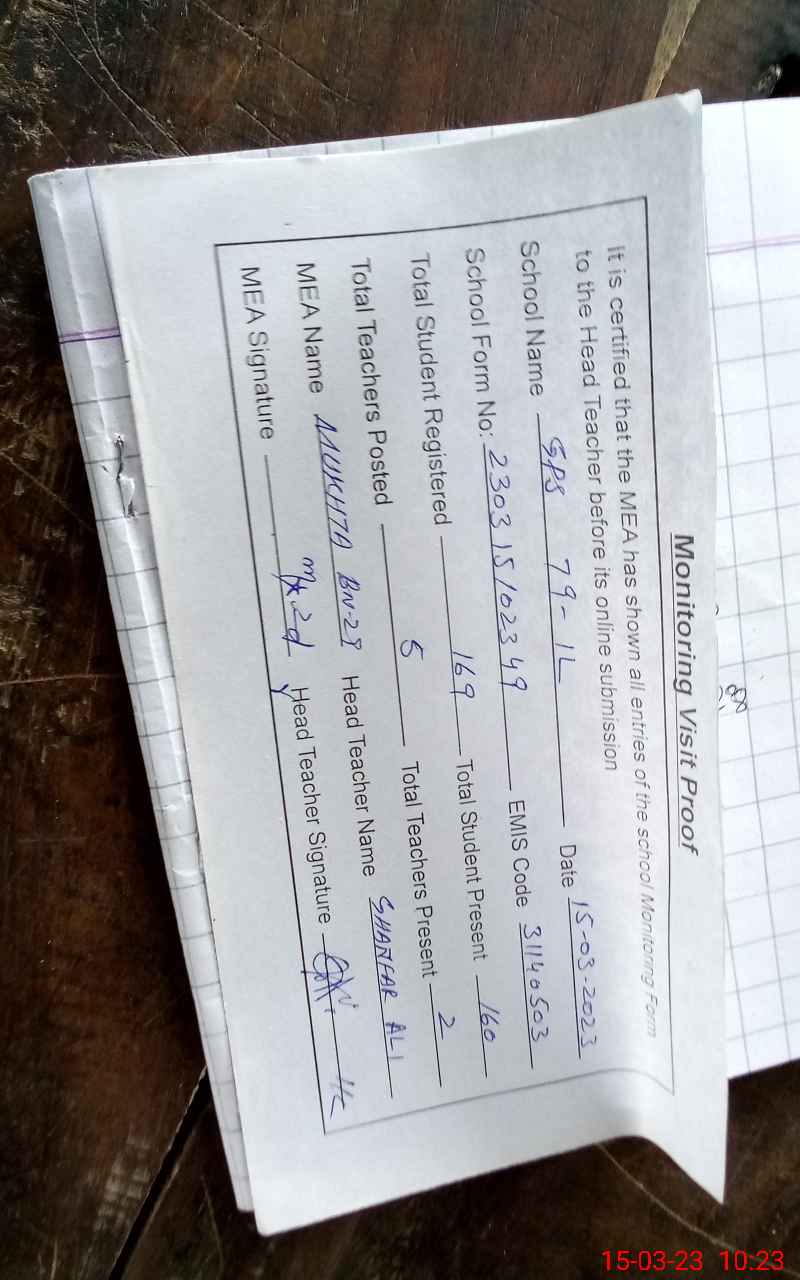 Monitoring Visit Proof
It is certified that the MEA has shown all entries of the school Monitoring Form
to the Head Teacher before its online submission
School Name GPS 79-1L Date 15-03-2023
School Form No: 230315102349 EMIS Code 31140503
Total Student Registered 169 Total Student Present 160
Total Teachers Posted 5 Total Teachers Present 2
MEA Name MUKHTA BN-28 Head Teacher Name ALI
MEA Signature Head Teacher Signature
15-03-23 10:23